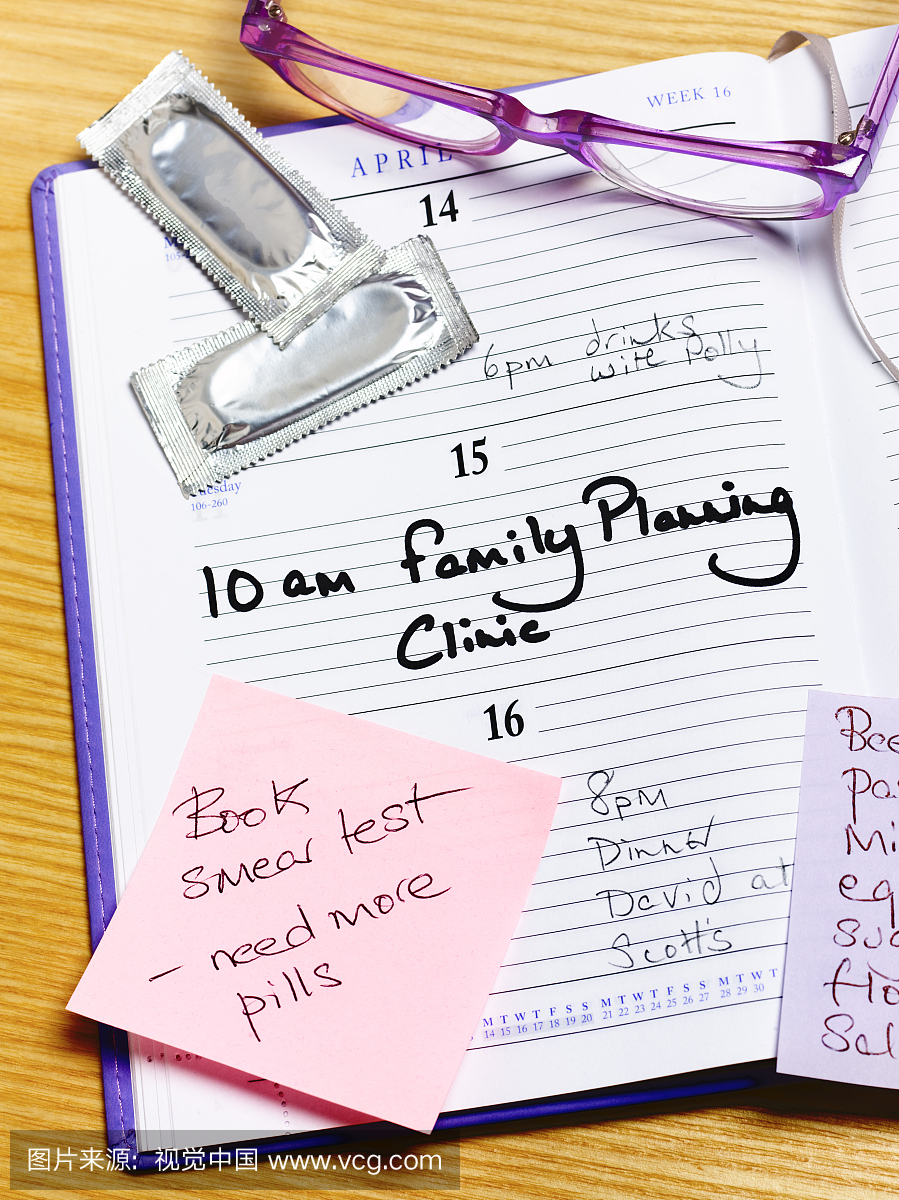 WEEK 16
APRIL
14
6pm drinks
with Polly
15
Tuesday
106-260
10 am Family Planning
Clinic
16
Book
smear test
- need more
pills
8pm
Dinner
David at
Scott's
M T W T F S S M T W T F S S M T W T
14 15 16 17 18 19 20 21 22 23 24 25 26 27 28 29 30
图片来源：视觉中国 www.vcg.com